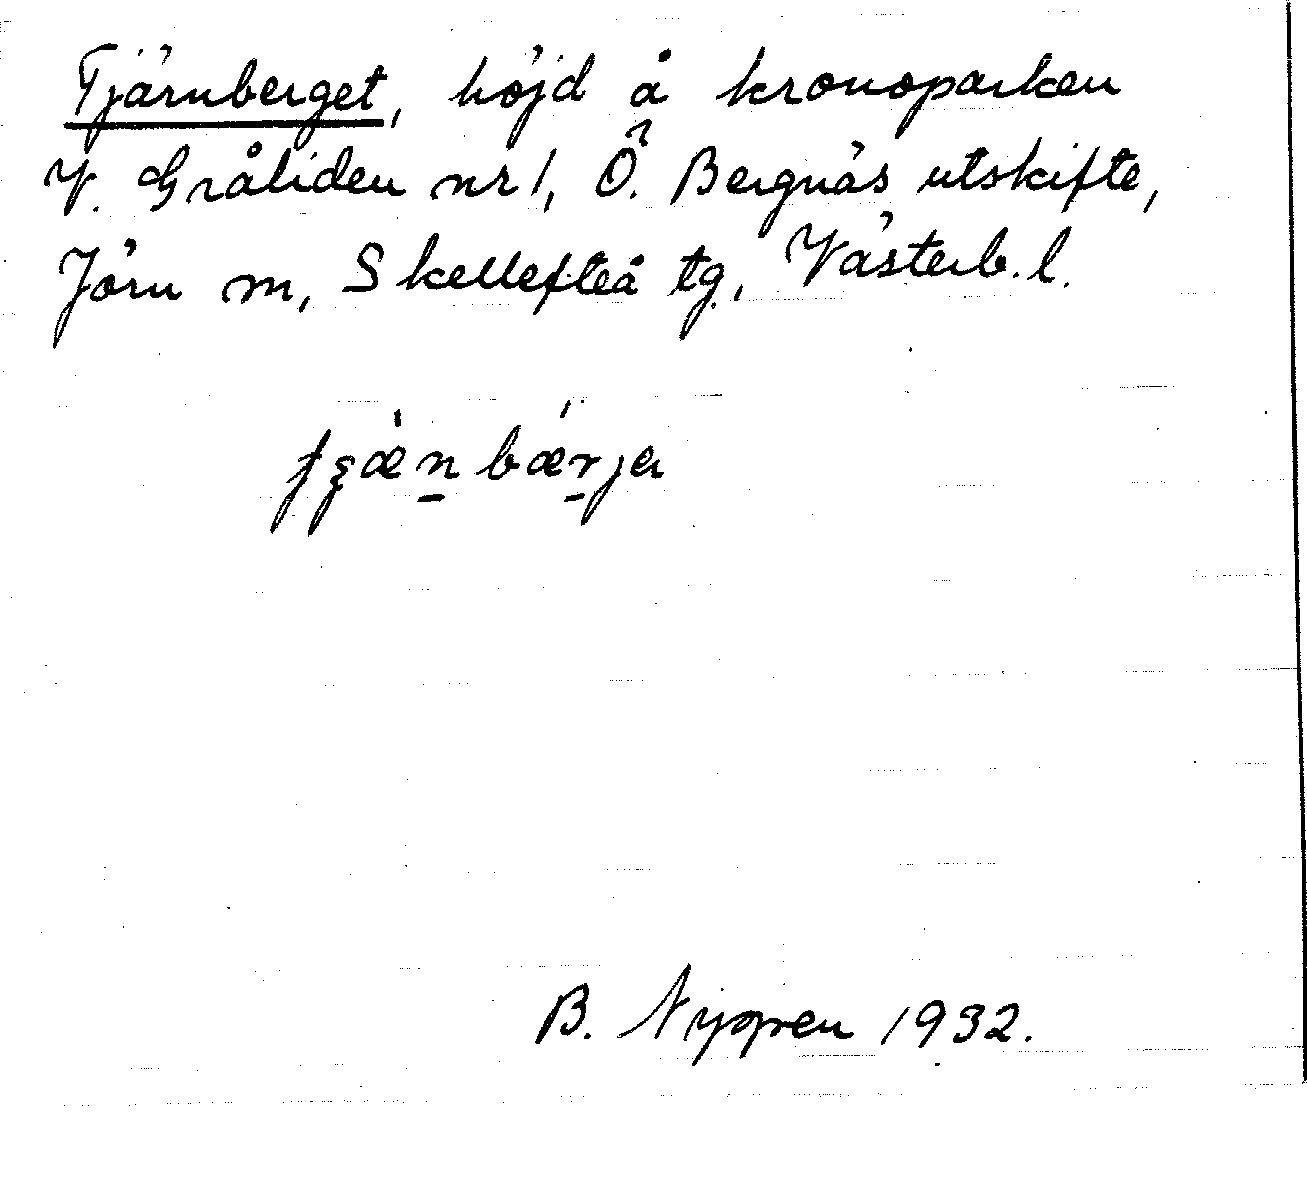 Tjärnberget, höjd å kronoparken
V. Gråliden nr 1, Ö. Bergnäs utskifte,
Jörn sn, Skellefteå tg, Västerb. l.
bærja
B. 1932.